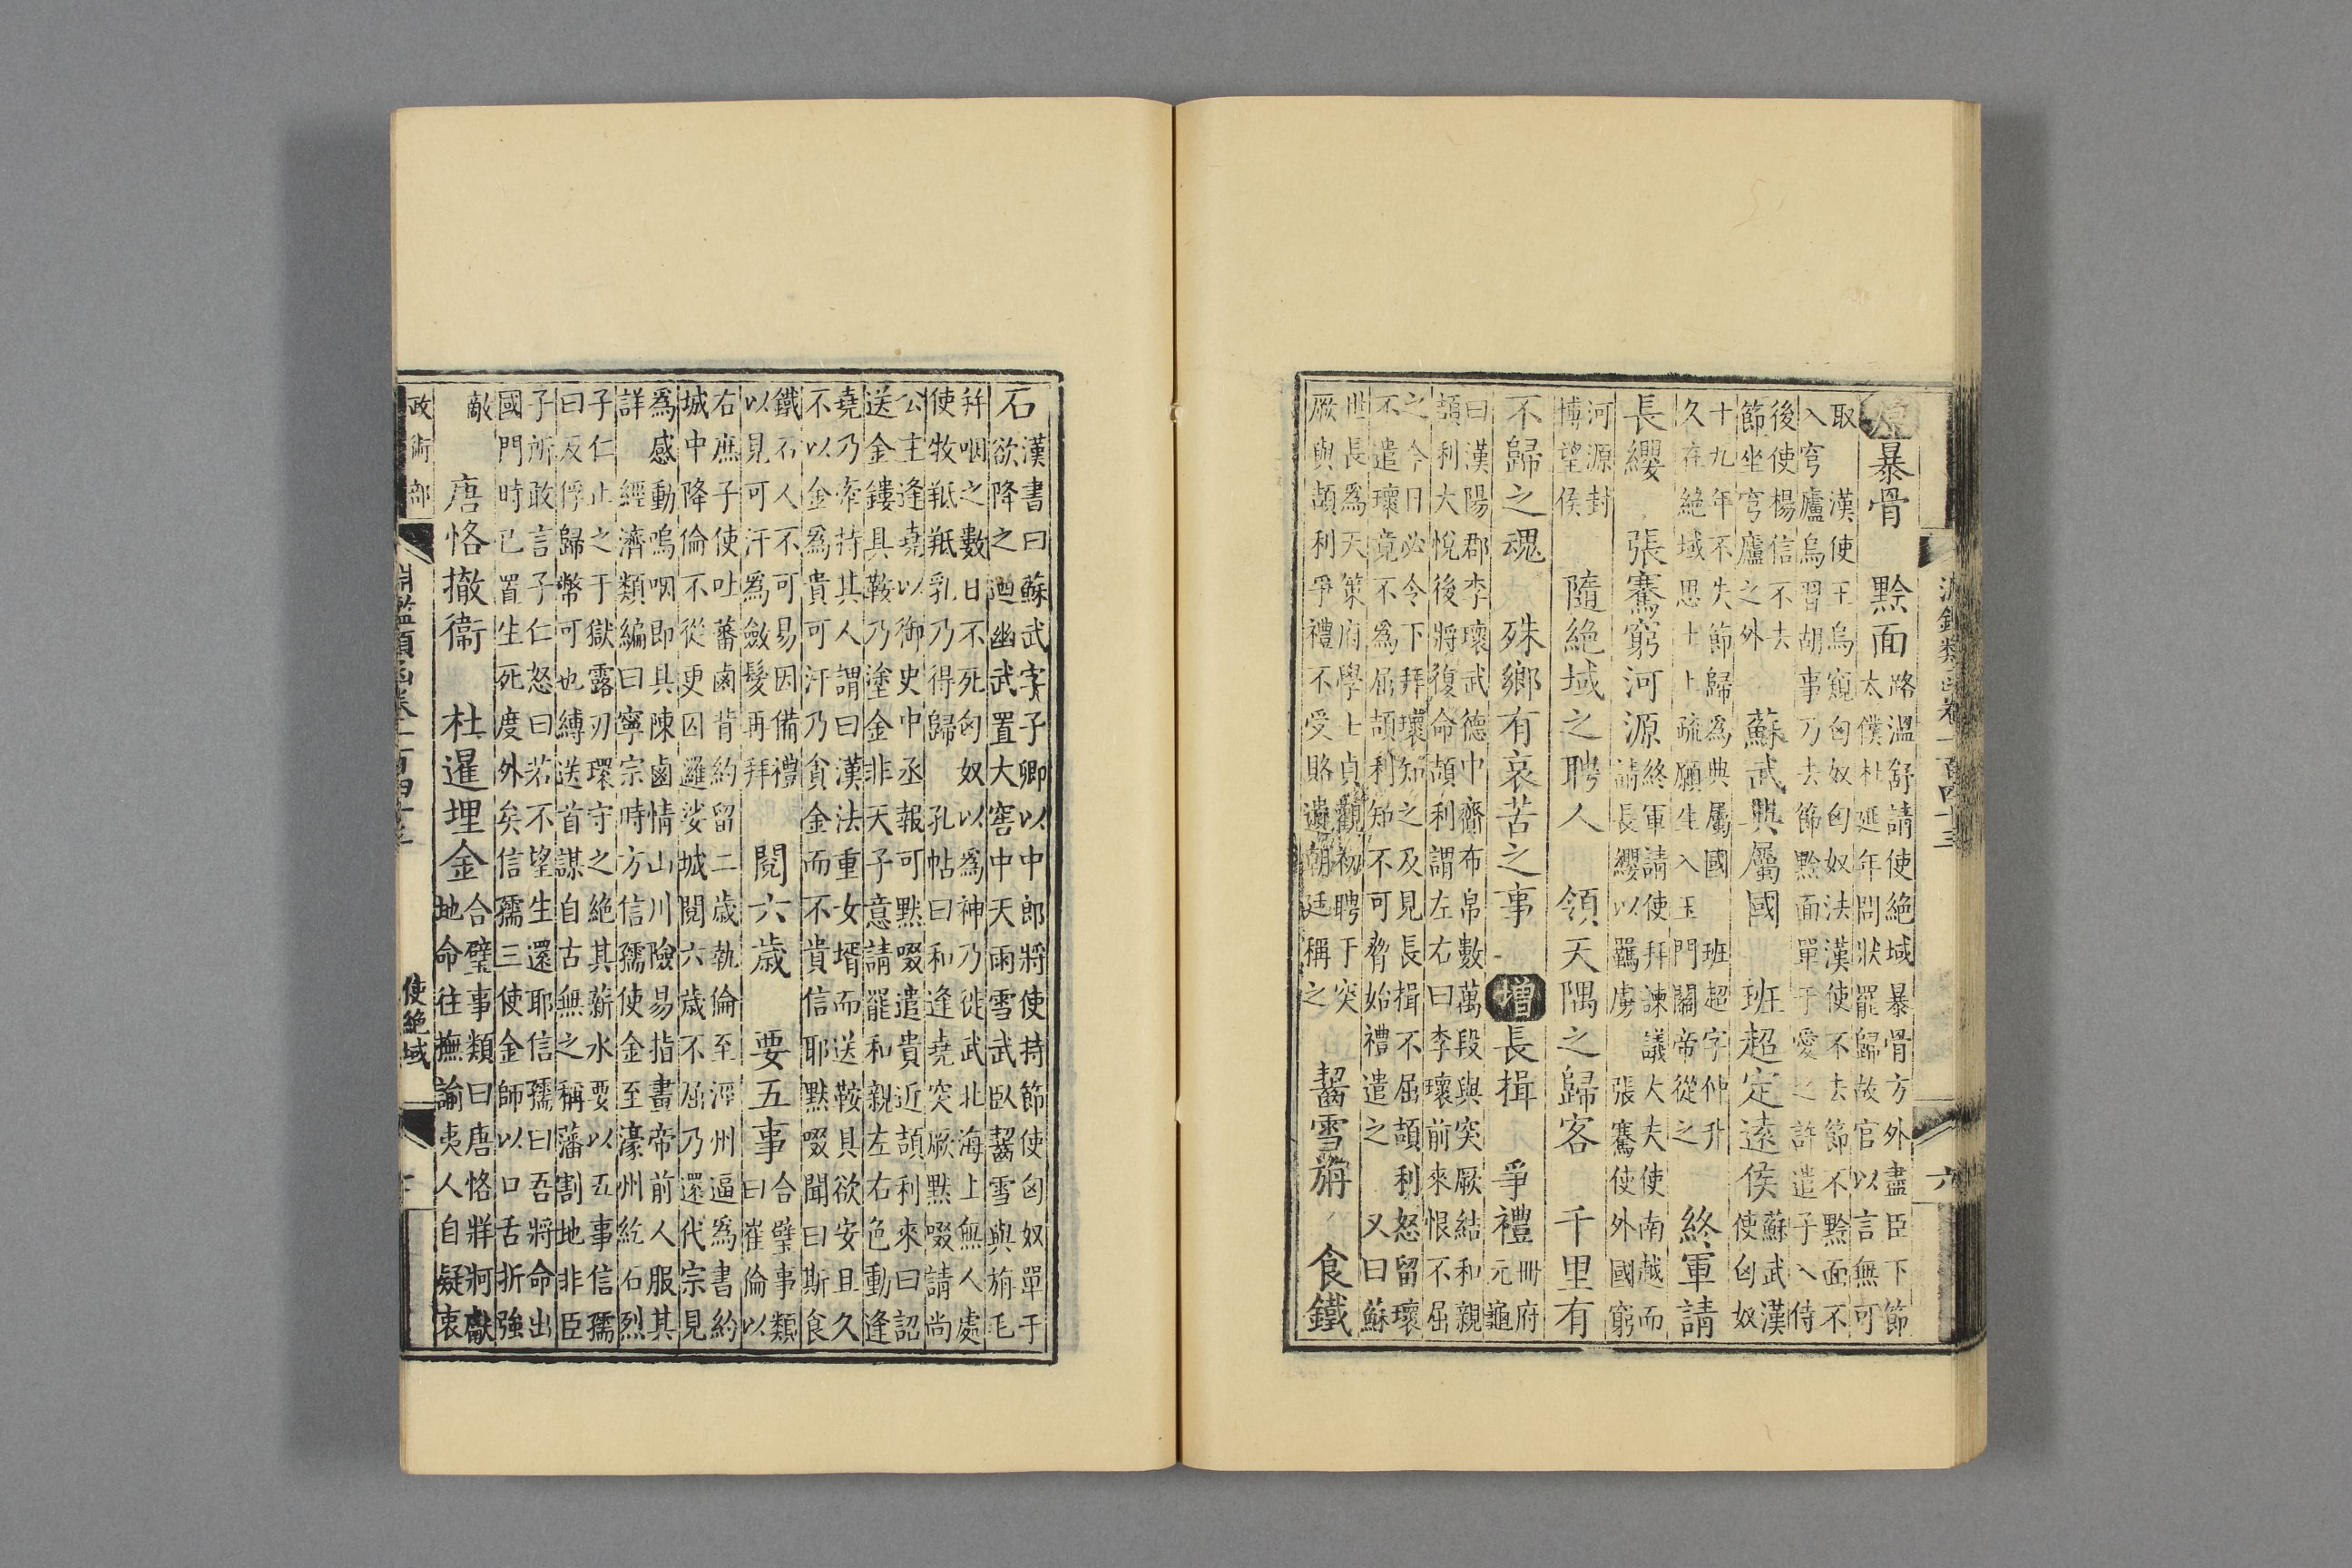 淵鑑類函卷一百四十三
六
原 暴骨 黥面
路溫舒請使絕域暴骨方外盡臣下節
太僕杜延年問狀罷歸故官以言無可
取 漢使王烏窺匈奴匈奴法漢使不去節不黥面不
入穹廬烏習胡事乃去節黥面單于愛之許遣子入侍
後使楊信不去
節坐穹廬之外
蘇武典屬國 班超定遠侯
蘇武漢
使匈奴
十九年不失節歸為典屬國 班超字仲升
久在絕域思土上疏願生入玉門關帝從之
終軍請
長纓 張騫窮河源
終軍請使拜諫議大夫使南越而
請長纓以羈虜 張騫使外國窮
河源封
博望侯
隨絕域之聘人 領天隅之歸客 千里有
不歸之魂 殊鄉有哀苦之事 增 長揖 爭禮
冊府
元龜
曰漢陽郡李壞武德中齎布帛數萬段與突厥結和親
頡利大悅後將復命頡利謂左右曰李壞前來恨不屈
之今日必令下拜壞知之及見長揖不屈頡利怒留壞
不遣壞竟不為屈頡利知不可脅始禮遣之 又曰蘇
世長為天策府學士貞觀初聘于突
厥與頡利爭禮不受賂遺朝廷稱之
齧雪旃 食鐵
石
漢書曰蘇武字子卿以中郎將使持節使匈奴單于
欲降之迺幽武置大窖中天雨雪武臥齧雪與旃毛
并咽之數日不死匈奴以為神乃徙武北海上無人處
使牧羝羝乳乃得歸 孔帖曰和逢堯突厥默啜請尚
公主逢堯以御史中丞報可默啜遣貴近頡利來曰詔
送金鏤具鞍乃塗金非天子意請罷和親左右色動逢
堯乃牽持其人謂曰漢法重女壻而送鞍具欲安且久
不以金為貴可汗乃貪金而不貴信耶默啜聞曰斯食
鐵石人不可易因備禮
以見可汗為斂髮再拜
閱六歲 要五事
合璧事類
曰崔倫以
右庶子使吐蕃鹵背約留二歲執倫至涇州逼為書約
城中降倫不從更囚邏娑城閱六歲不屈乃還代宗見
為感動嗚咽即具陳鹵情山川險易指畫帝前人服其
詳 經濟類編曰寧宗時方信孺使金至濠州紇石烈
子仁止之于獄露刃環守之絕其薪水要以五事信孺
曰反俘歸幣可也縛送首謀自古無之稱藩割地非臣
子所敢言子仁怒曰若不望生還耶信孺曰吾將命出
國門時已置生死度外矣信孺三使金師以口舌折強
敵
唐恪撤衞 杜暹埋金
合璧事類曰唐恪牂牁獻
地命往撫諭夷人自疑衷
政術部 淵鑑類函卷一百四十三 使絕域